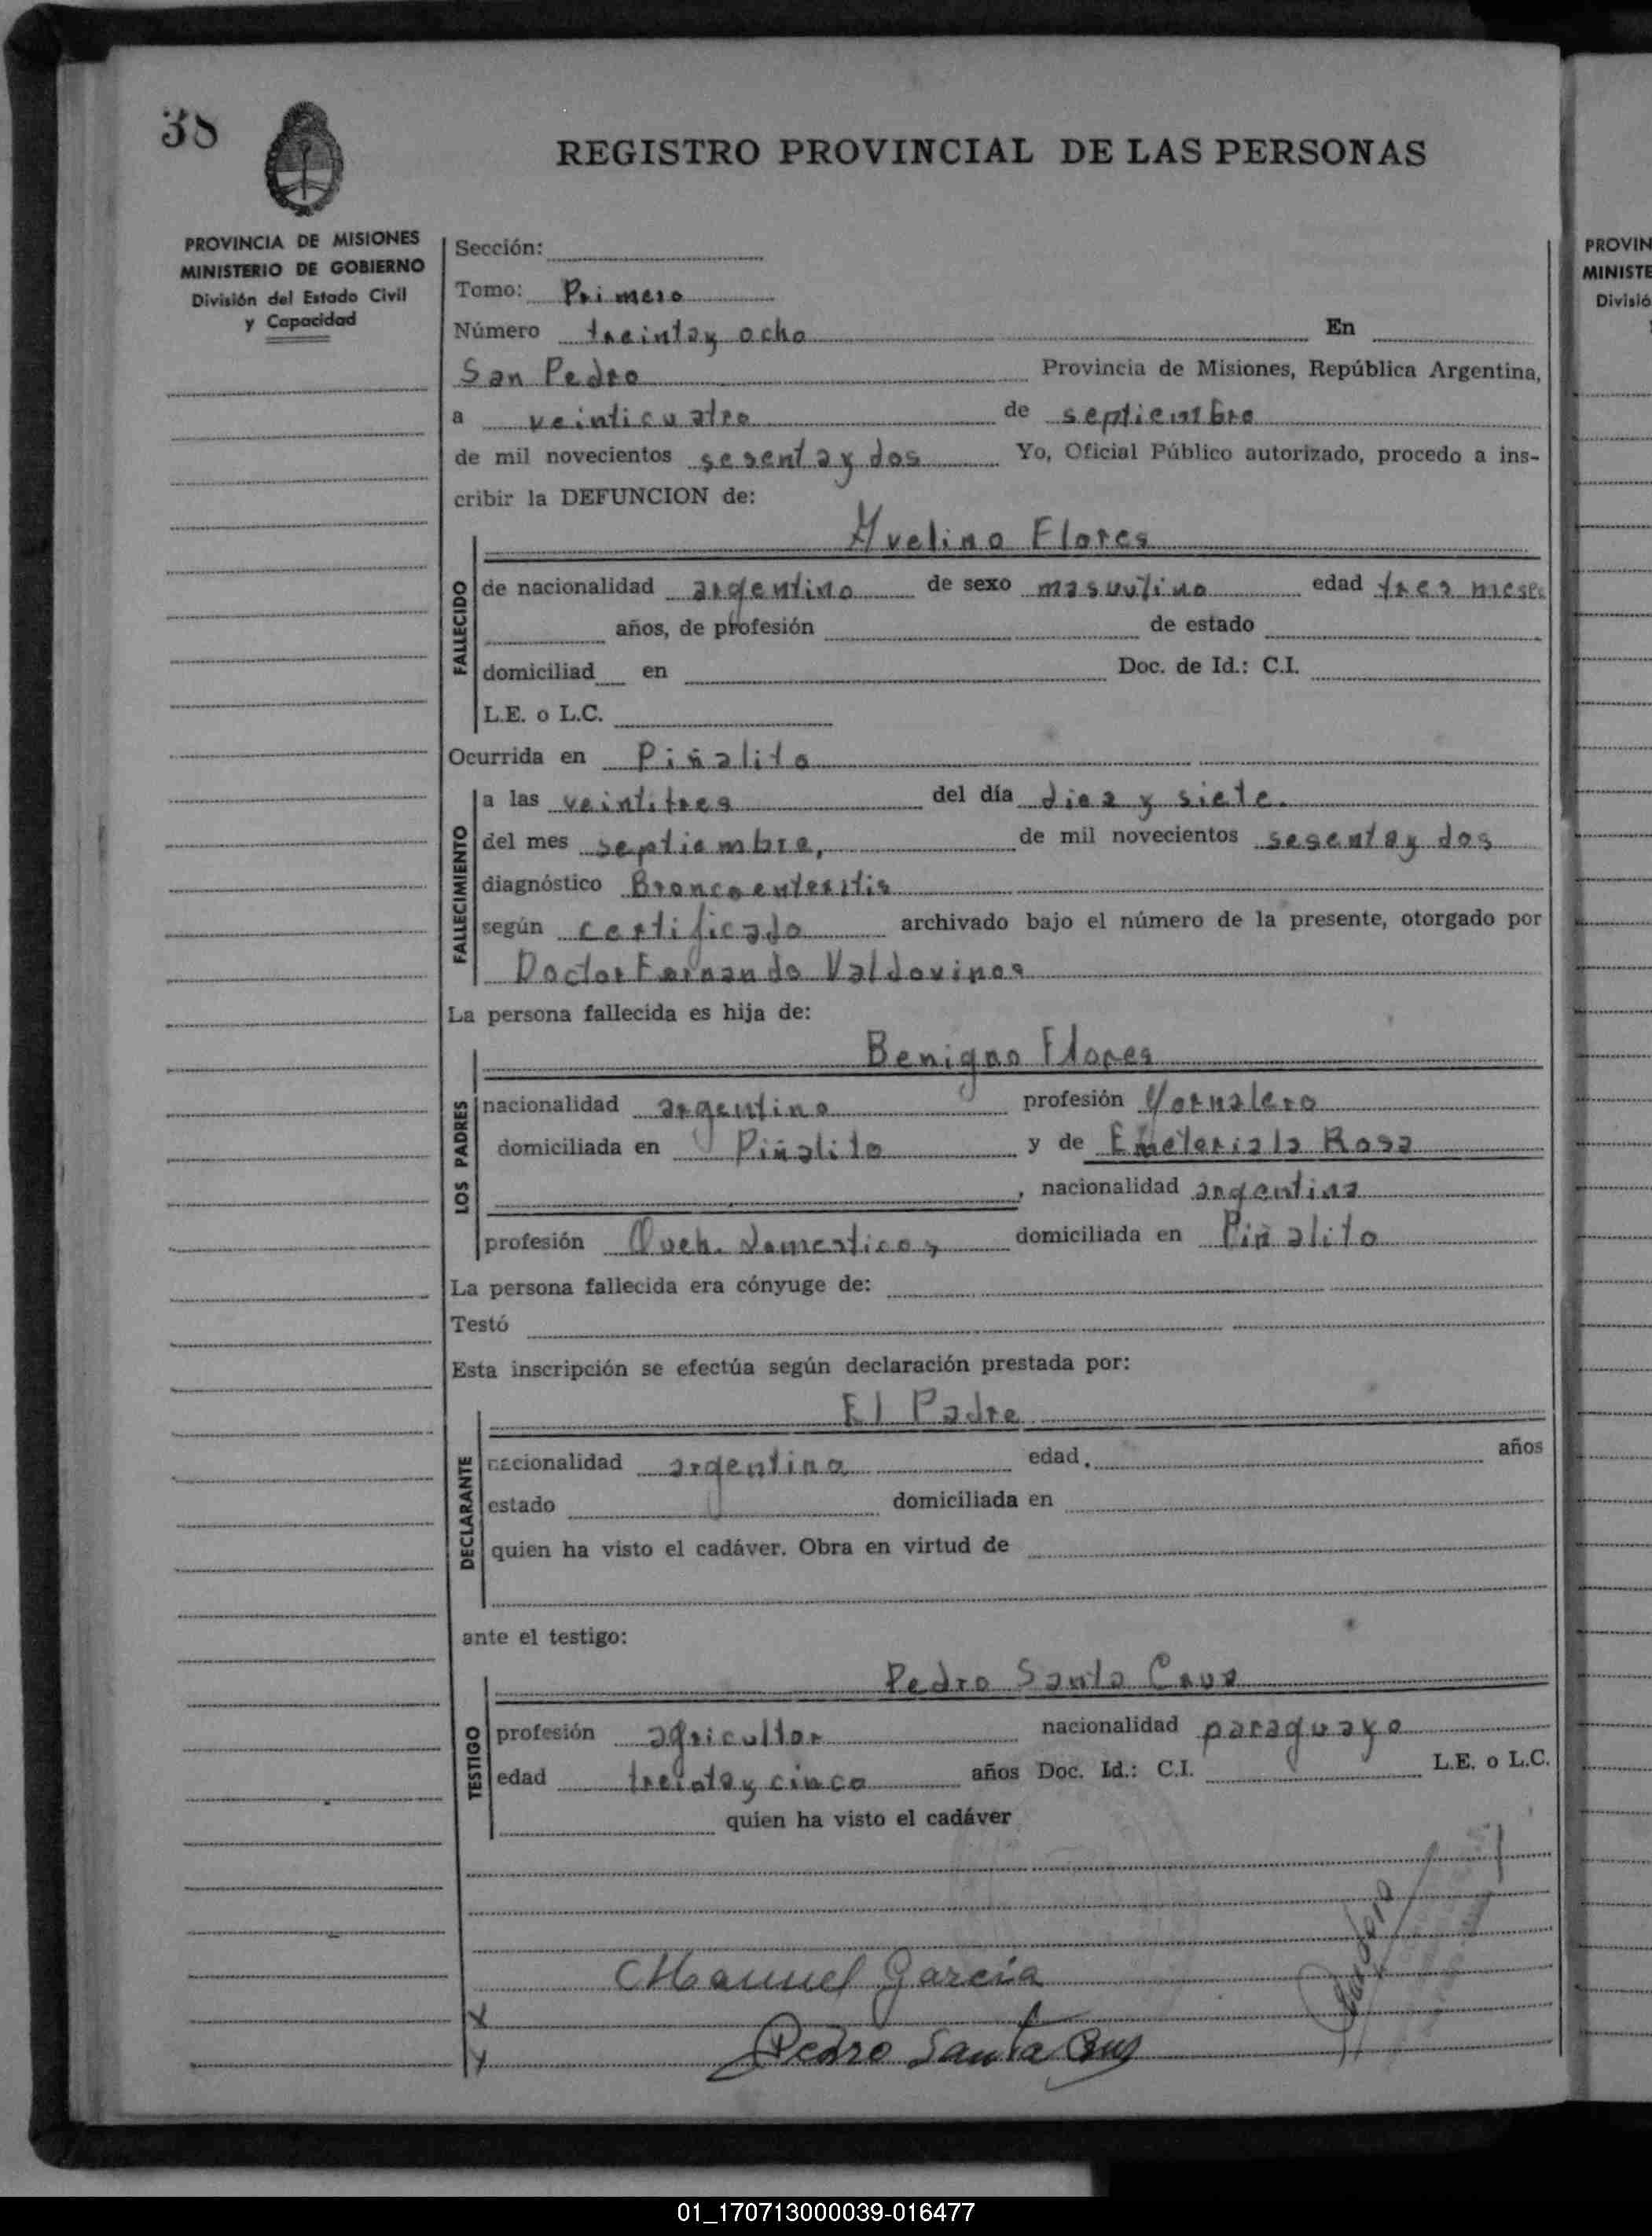 38
REGISTRO PROVINCIAL DE LAS PERSONAS
PROVINCIA DE MISIONES
MINISTERIO DE GOBIERNO
División del Estado Civil
y Capacidad
Sección:
Tomo: Primero
Número treintay ocho En
San Pedro Provincia de Misiones, República Argentina,
a veinticuatro de septiembre
de mil novecientos sesentay dos Yo, Oficial Público autorizado, procedo a ins-
cribir la DEFUNCION de:
Avelino Flores
FALLECIDO
de nacionalidad argentino de sexo masculino edad tres meses
años, de profesión de estado
domiciliad en Doc. de Id.: C.I.
L.E. o L.C.
Ocurrida en Piñalito
FALLECIMIENTO
a las veintitres del día diez y siete.
del mes septiembre, de mil novecientos sesentay dos
diagnóstico Broncoenteritis
según certificado archivado bajo el número de la presente, otorgado por
Doctor Fernando Valdovinos
La persona fallecida es hija de:
Benigno Flores
LOS PADRES
nacionalidad argentino profesión Yornalero
domiciliada en Piñalito y de Emeteria la Rosa
, nacionalidad argentina
profesión Queh. domesticos, domiciliada en Piñalito
La persona fallecida era cónyuge de:
Testó
Esta inscripción se efectúa según declaración prestada por:
El Padre
DECLARANTE
nacionalidad argentino edad. años
estado domiciliada en
quien ha visto el cadáver. Obra en virtud de
ante el testigo:
Pedro Santa Cruz
TESTIGO
profesión agricultor nacionalidad paraguayo
edad treintay cinco años Doc. Id.: C.I. L.E. o L.C.
quien ha visto el cadáver
Manuel Garcia
Pedro Santa Cruz
PROVIN
MINISTE
Divisió
01_170713000039-016477